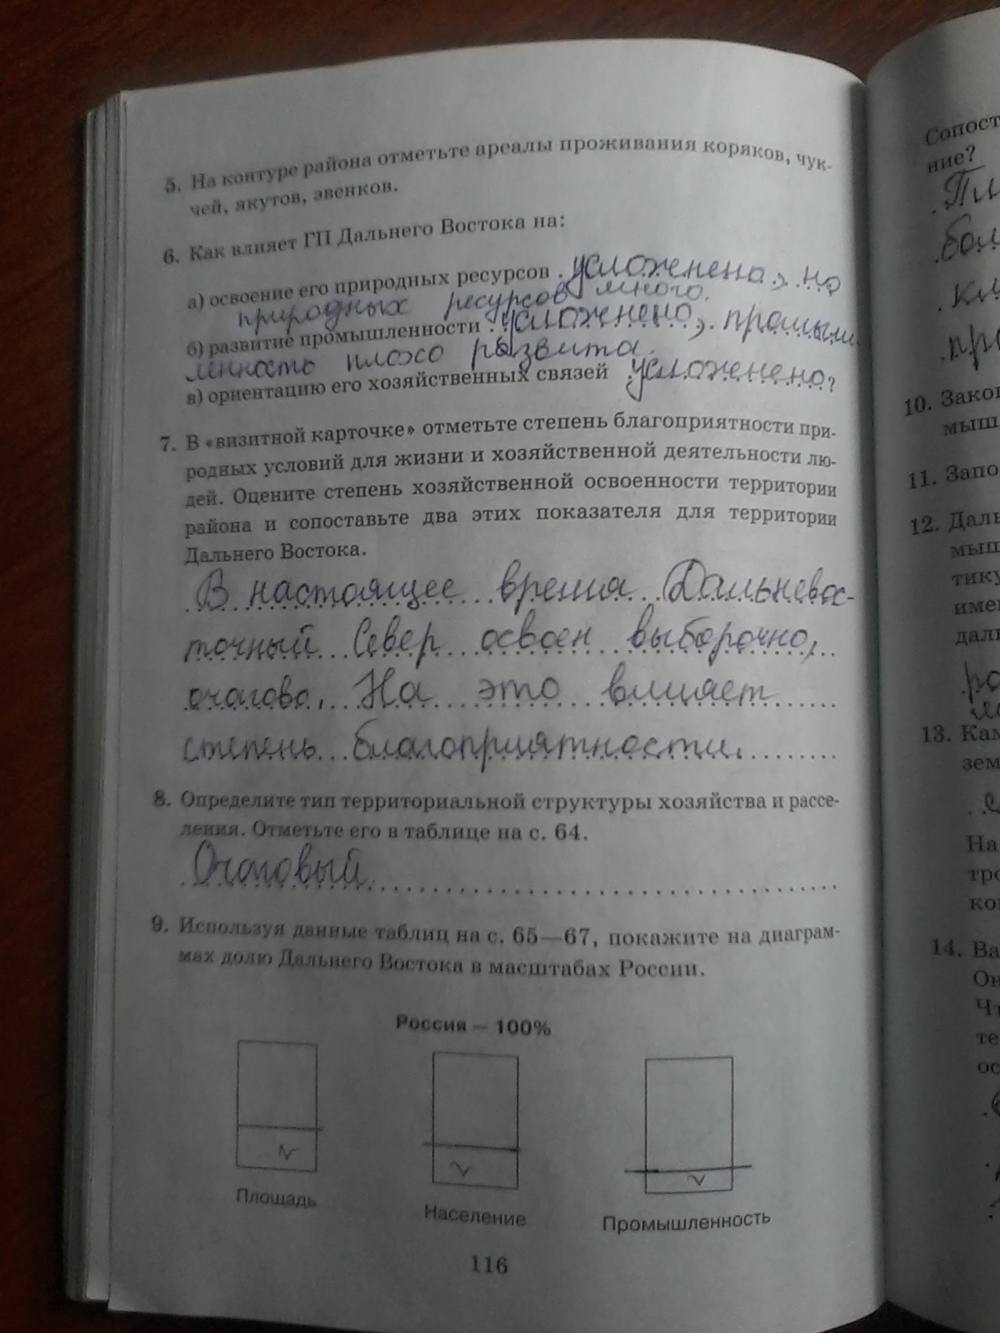 5. На контуре района отметьте ареалы проживания коряков, чук-
чей, якутов, эвенков.
6. Как влияет ГП Дальнего Востока на:
а) освоение его природных ресурсов усложнена, но
природных ресурсов много.
б) развитие промышленности усложнено, промышле
нность плохо развита.
в) ориентацию его хозяйственных связей усложенено?
7. В «визитной карточке» отметьте степень благоприятности при-
родных условий для жизни и хозяйственной деятельности лю-
дей. Оцените степень хозяйственной освоенности территории
района и сопоставьте два этих показателя для территории
Дальнего Востока.
В настоящее время Дальневос-
точный Север освоен выборочно,
очагово. На это влияет
степень благоприятности.
8. Определите тип территориальной структуры хозяйства и рассе-
ления. Отметьте его в таблице на с. 64.
Очаговый
9. Используя данные таблиц на с. 65—67, покажите на диаграм-
мах долю Дальнего Востока в масштабах России.
Россия — 100%
Площадь
Население
Промышленность
116
Сопост
ние?
10. Зако
мыш
11. Запо
12. Даль
мыш
тику
име
дал
13. Кам
зем
На
тро
ко
14. Ва
Он
Чт
те
ос